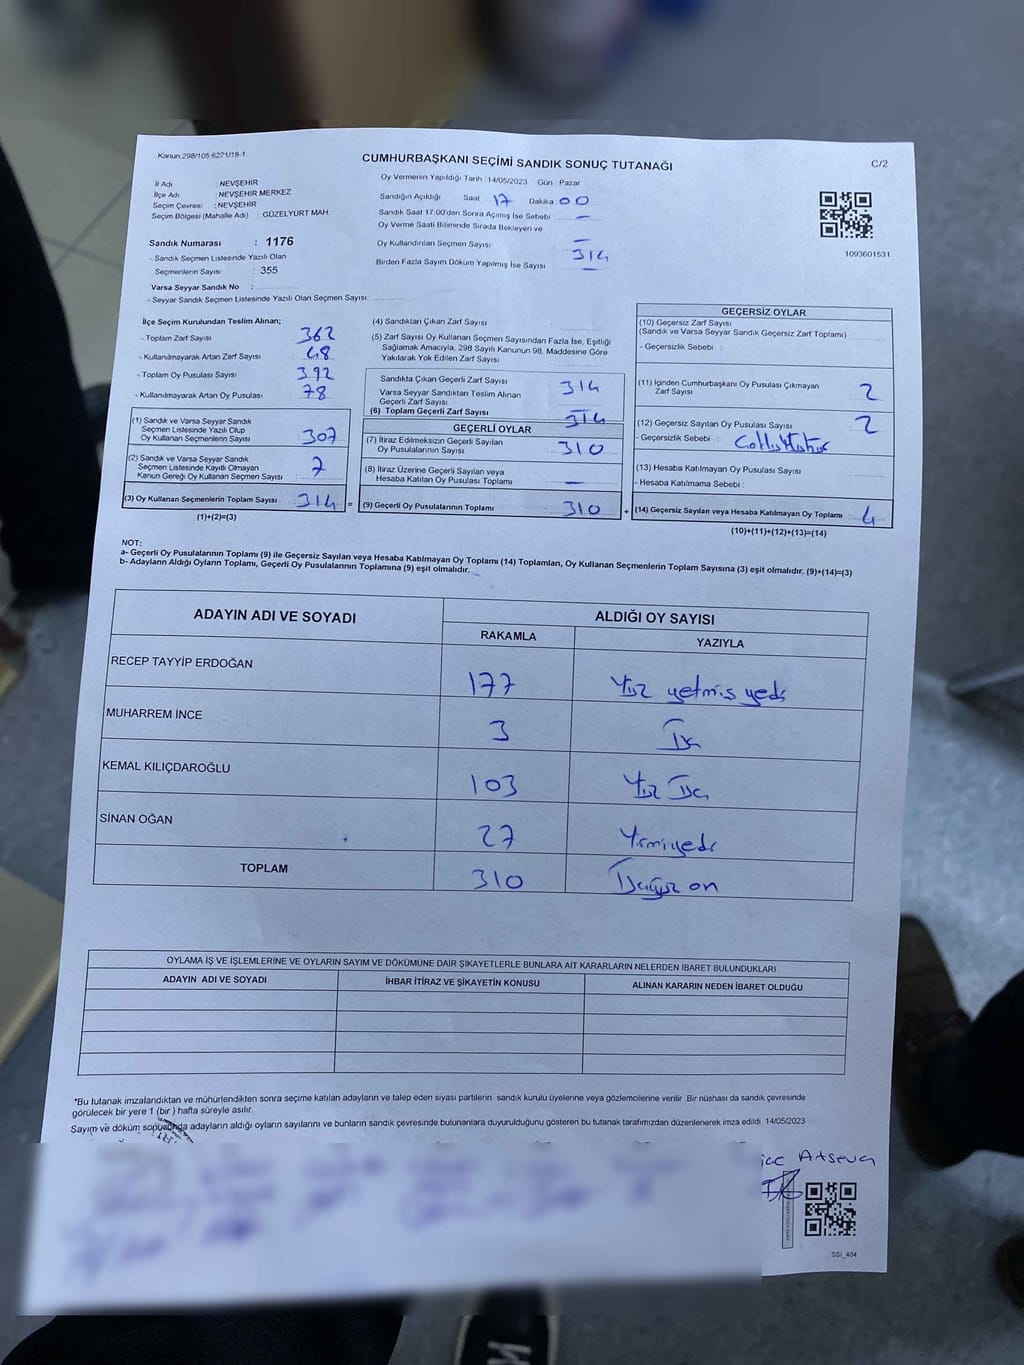 Kanun.298/105 6271/18-1
CUMHURBAŞKANI SEÇİMİ SANDIK SONUÇ TUTANAĞI
C/2
İl Adı : NEVŞEHİR
İlçe Adı : NEVŞEHİR MERKEZ
Seçim Çevresi : NEVŞEHİR
Seçim Bölgesi (Mahalle Adı) : GÜZELYURT MAH.
Sandık Numarası : 1176
- Sandık Seçmen Listesinde Yazılı Olan
Seçmenlerin Sayısı : 355
Varsa Seyyar Sandık No :
- Seyyar Sandık Seçmen Listesinde Yazılı Olan Seçmen Sayısı:
Oy Vermenin Yapıldığı Tarih : 14/05/2023 Gün : Pazar
Sandığın Açıldığı Saat 17 Dakika 00
Sandık Saat 17:00'den Sonra Açımış İse Sebebi : -
Oy Verme Saati Bitiminde Sırada Bekleyen ve
Oy Kullandırılan Seçmen Sayısı -
314
Birden Fazla Sayım Döküm Yapılmış İse Sayısı -
1093601531
İlçe Seçim Kurulundan Teslim Alınan;
- Toplam Zarf Sayısı : 362
- Kullanılmayarak Artan Zarf Sayısı : 48
- Toplam Oy Pusulası Sayısı : 392
- Kullanılmayarak Artan Oy Pusulası : 78
(1) Sandık ve Varsa Seyyar Sandık
Seçmen Listesinde Yazılı Olup
Oy Kullanan Seçmenlerin Sayısı : 307
(2) Sandık ve Varsa Seyyar Sandık
Seçmen Listesinde Kayıtlı Olmayan
Kanun Gereği Oy Kullanan Seçmen Sayısı : 7
(3) Oy Kullanan Seçmenlerin Toplam Sayısı : 314 =
(1)+(2)=(3)
(4) Sandıktan Çıkan Zarf Sayısı :
(5) Zarf Sayısı Oy Kullanan Seçmen Sayısından Fazla İse, Eşitliği
Sağlamak Amacıyla, 298 Sayılı Kanunun 98. Maddesine Göre
Yakılarak Yok Edilen Zarf Sayısı :
Sandıkta Çıkan Geçerli Zarf Sayısı : 314
Varsa Seyyar Sandıktan Teslim Alınan
Geçerli Zarf Sayısı : -
(6) Toplam Geçerli Zarf Sayısı : 314
GEÇERLİ OYLAR
(7) İtiraz Edilmeksizin Geçerli Sayılan
Oy Pusulalarının Sayısı : 310
(8) İtiraz Üzerine Geçerli Sayılan veya
Hesaba Katılan Oy Pusulası Toplamı : -
(9) Geçerli Oy Pusulalarının Toplamı : 310 +
GEÇERSİZ OYLAR
(10) Geçersiz Zarf Sayısı
(Sandık ve Varsa Seyyar Sandık Geçersiz Zarf Toplamı) :
- Geçersizlik Sebebi :
(11) İçinden Cumhurbaşkanı Oy Pusulası Çıkmayan
Zarf Sayısı : 2
(12) Geçersiz Sayılan Oy Pusulası Sayısı : 2
- Geçersizlik Sebebi :
(13) Hesaba Katılmayan Oy Pusulası Sayısı
- Hesaba Katılmama Sebebi :
(14) Geçersiz Sayılan veya Hesaba Katılmayan Oy Toplamı : 4
(10)+(11)+(12)+(13)=(14)
NOT:
a- Geçerli Oy Pusulalarının Toplamı (9) ile Geçersiz Sayılan veya Hesaba Katılmayan Oy Toplamı (14) Toplamları, Oy Kullanan Seçmenlerin Toplam Sayısına (3) eşit olmalıdır. (9)+(14)=(3)
b- Adayların Aldığı Oyların Toplamı, Geçerli Oy Pusulalarının Toplamına (9) eşit olmalıdır.
ADAYIN ADI VE SOYADI
ALDIĞI OY SAYISI
RAKAMLA YAZIYLA
RECEP TAYYİP ERDOĞAN 177 Yüz yetmiş yedi
MUHARREM İNCE 3 Üç
KEMAL KILIÇDAROĞLU 103 Yüz Üç
SİNAN OĞAN 27 Yirmiyedi
TOPLAM 310 Üçyüz on
OYLAMA İŞ VE İŞLEMLERİNE VE OYLARIN SAYIM VE DÖKÜMÜNE DAİR ŞİKAYETLERLE BUNLARA AİT KARARLARIN NELERDEN İBARET BULUNDUKLARI
ADAYIN ADI VE SOYADI İHBAR İTİRAZ VE ŞİKAYETİN KONUSU ALINAN KARARIN NEDEN İBARET OLDUĞU
*Bu tutanak imzalandıktan ve mühürlendikten sonra seçime katılan adayların ve talep eden siyasi partilerin sandık kurulu üyelerine veya gözlemcilerine verilir .Bir nüshası da sandık çevresinde
görülecek bir yere 1 (bir ) hafta süreyle asılır.
Sayım ve döküm sonucunda adayların aldığı oyların sayılarını ve bunların sandık çevresinde bulunanlara duyurulduğunu gösteren bu tutanak tarafımızdan düzenlenerek imza edildi. 14/05/2023
SSI_404